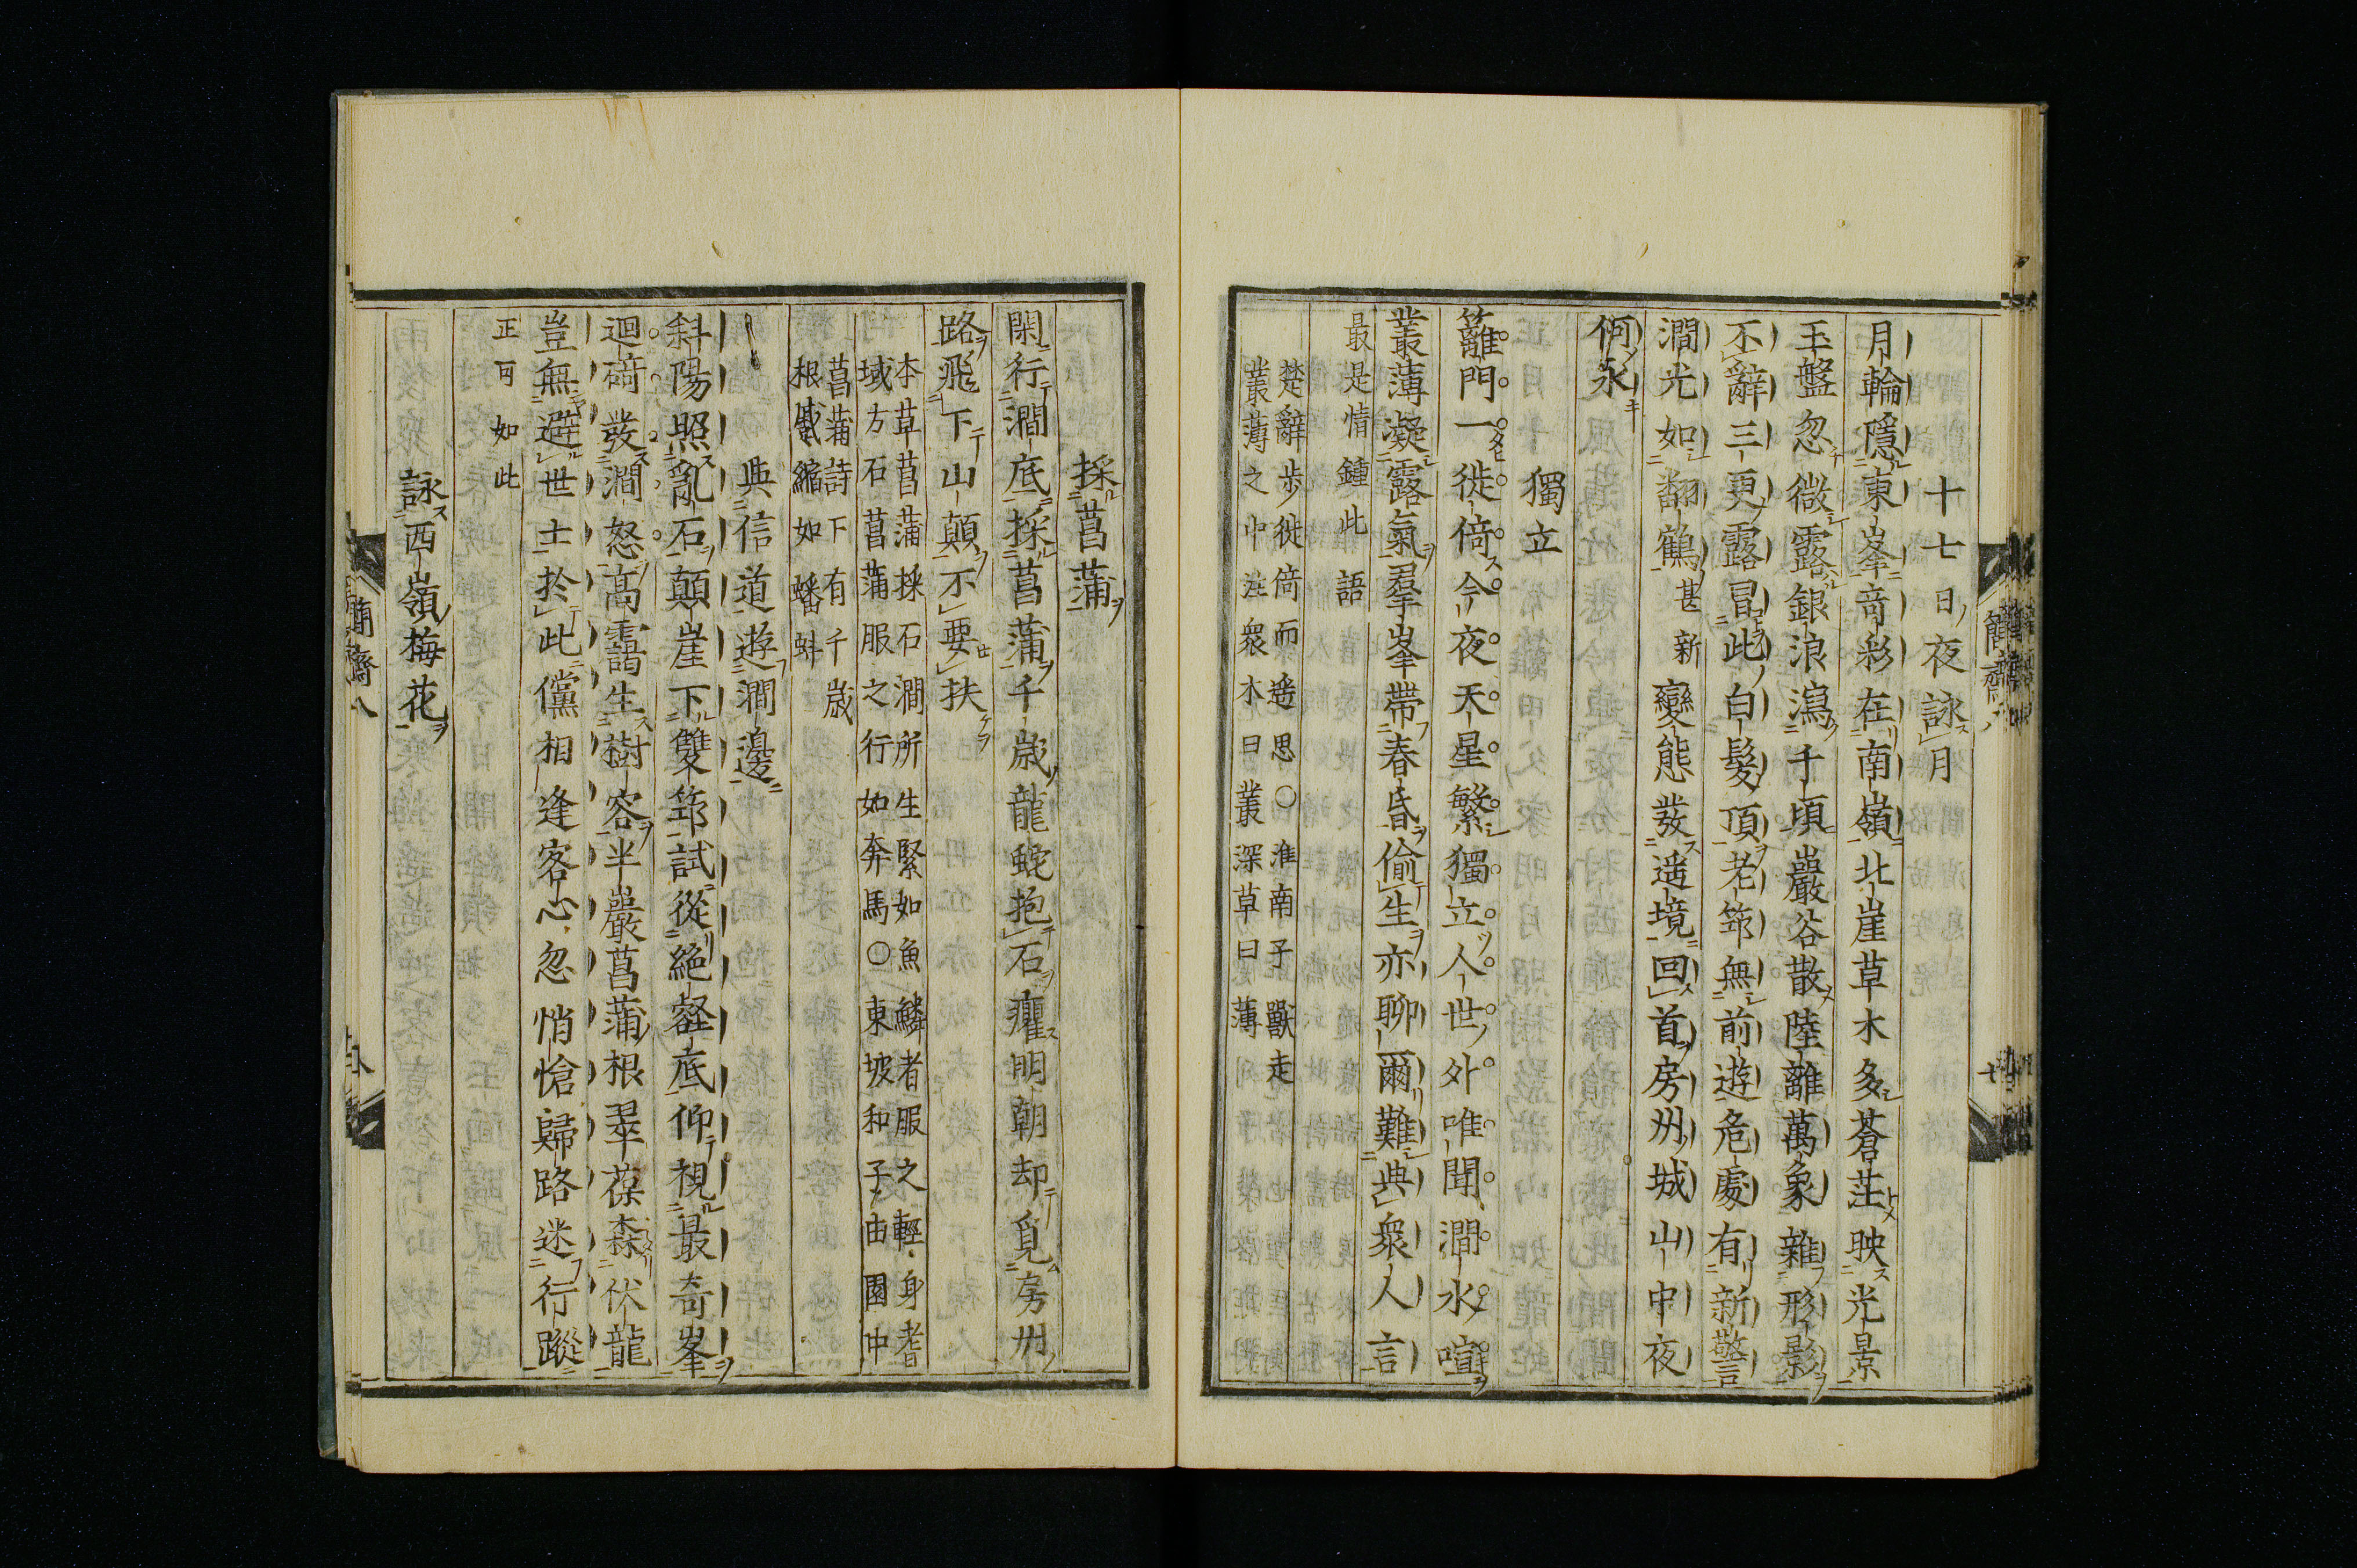 十七日夜詠月
月輪隱東峯竒彩在南嶺北崖草木多蒼茫映光景
玉盤忽微露銀浪瀉千頃巖谷散陸離萬象雜形影
不辭三更露冒此白髮頂老筇無前遊危處有新警
澗光如翻鶴甚新變態發遥境回首房州城山中夜
何永
獨立
籬門一徙倚今夜天星繁獨立人世外唯聞澗水喧
叢薄凝露氣羣峯帶春昏偷生亦聊爾難與衆人言
最是情鍾此語
楚辭步徙倚而遥思○淮南子獸走
叢薄之中注衆木曰叢深草曰薄
簡齋八
採菖蒲
閑行澗底採菖蒲千歲龍蛇抱石癯明朝却覓房州
路飛下山顛不要扶
本草菖蒲採石澗所生緊如魚鱗者服之輕身耆
域方石菖蒲服之行如奔馬○東坡和子由園中
菖蒲詩下有千歲
根蹙縮如蟠虯
與信道遊澗邊
斜陽照亂石顛崖下雙筇試從絕壑底仰視最奇峯
迴碕發澗怒高靄生樹容半巖菖蒲根翠葆森伏龍
豈無避世士於此儻相逢客心忽悄愴歸路迷行蹤
正可如此
詠西嶺梅花
簡齋八